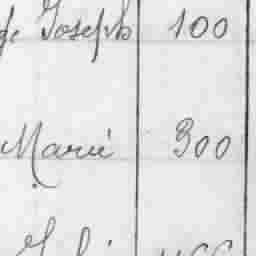 de Joseph 100
Marie 300